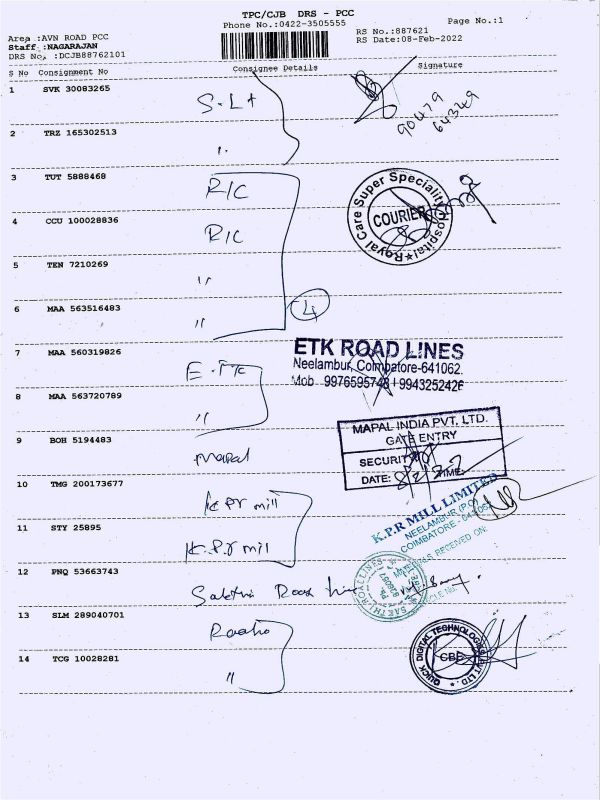 TPC/CJB DRS - PCC
Phone No.:0422-3505555
Page No.:1
Area :AVN ROAD PCC
Staff :NAGARAJAN
DRS No. :DCJB88762101
RS No.:887621
RS Date:08-Feb-2022
S No Consignment No Consignee Details Signature
1 SVK 30083265 S.L+
90479
64349
2 TRZ 165302513 "
3 TUT 5888468 R/C
Royal Care Super Speciality Hospital
COURIER
4 CCU 100028836 R/C
5 TEN 7210269 "
6 MAA 563516483 "
4
7 MAA 560319826
ETK ROAD LINES
Neelambur, Coimbatore-641062.
Mob 9976595748 / 9943252426
8 MAA 563720789 "
9 BOH 5194483 Mapal
MAPAL INDIA PVT. LTD.
GATE ENTRY
SECURITY
DATE: 8/2/22 TIME:
10 TMG 200173677 K PR mill
K.P.R MILL LIMITED
NEELAMBUR (PO)
COIMBATORE -
MATERIALS RECEIVED ON:
VEHICLE No.
11 STY 25895 K.P.r mil
12 PNQ 53663743 Sakthi Road line
SAKTHI ROAD LINES
13 SLM 289040701
14 TCG 10028281 "
QUICK DIGITAL TECHNOLOGIES PVT LTD.
CBE